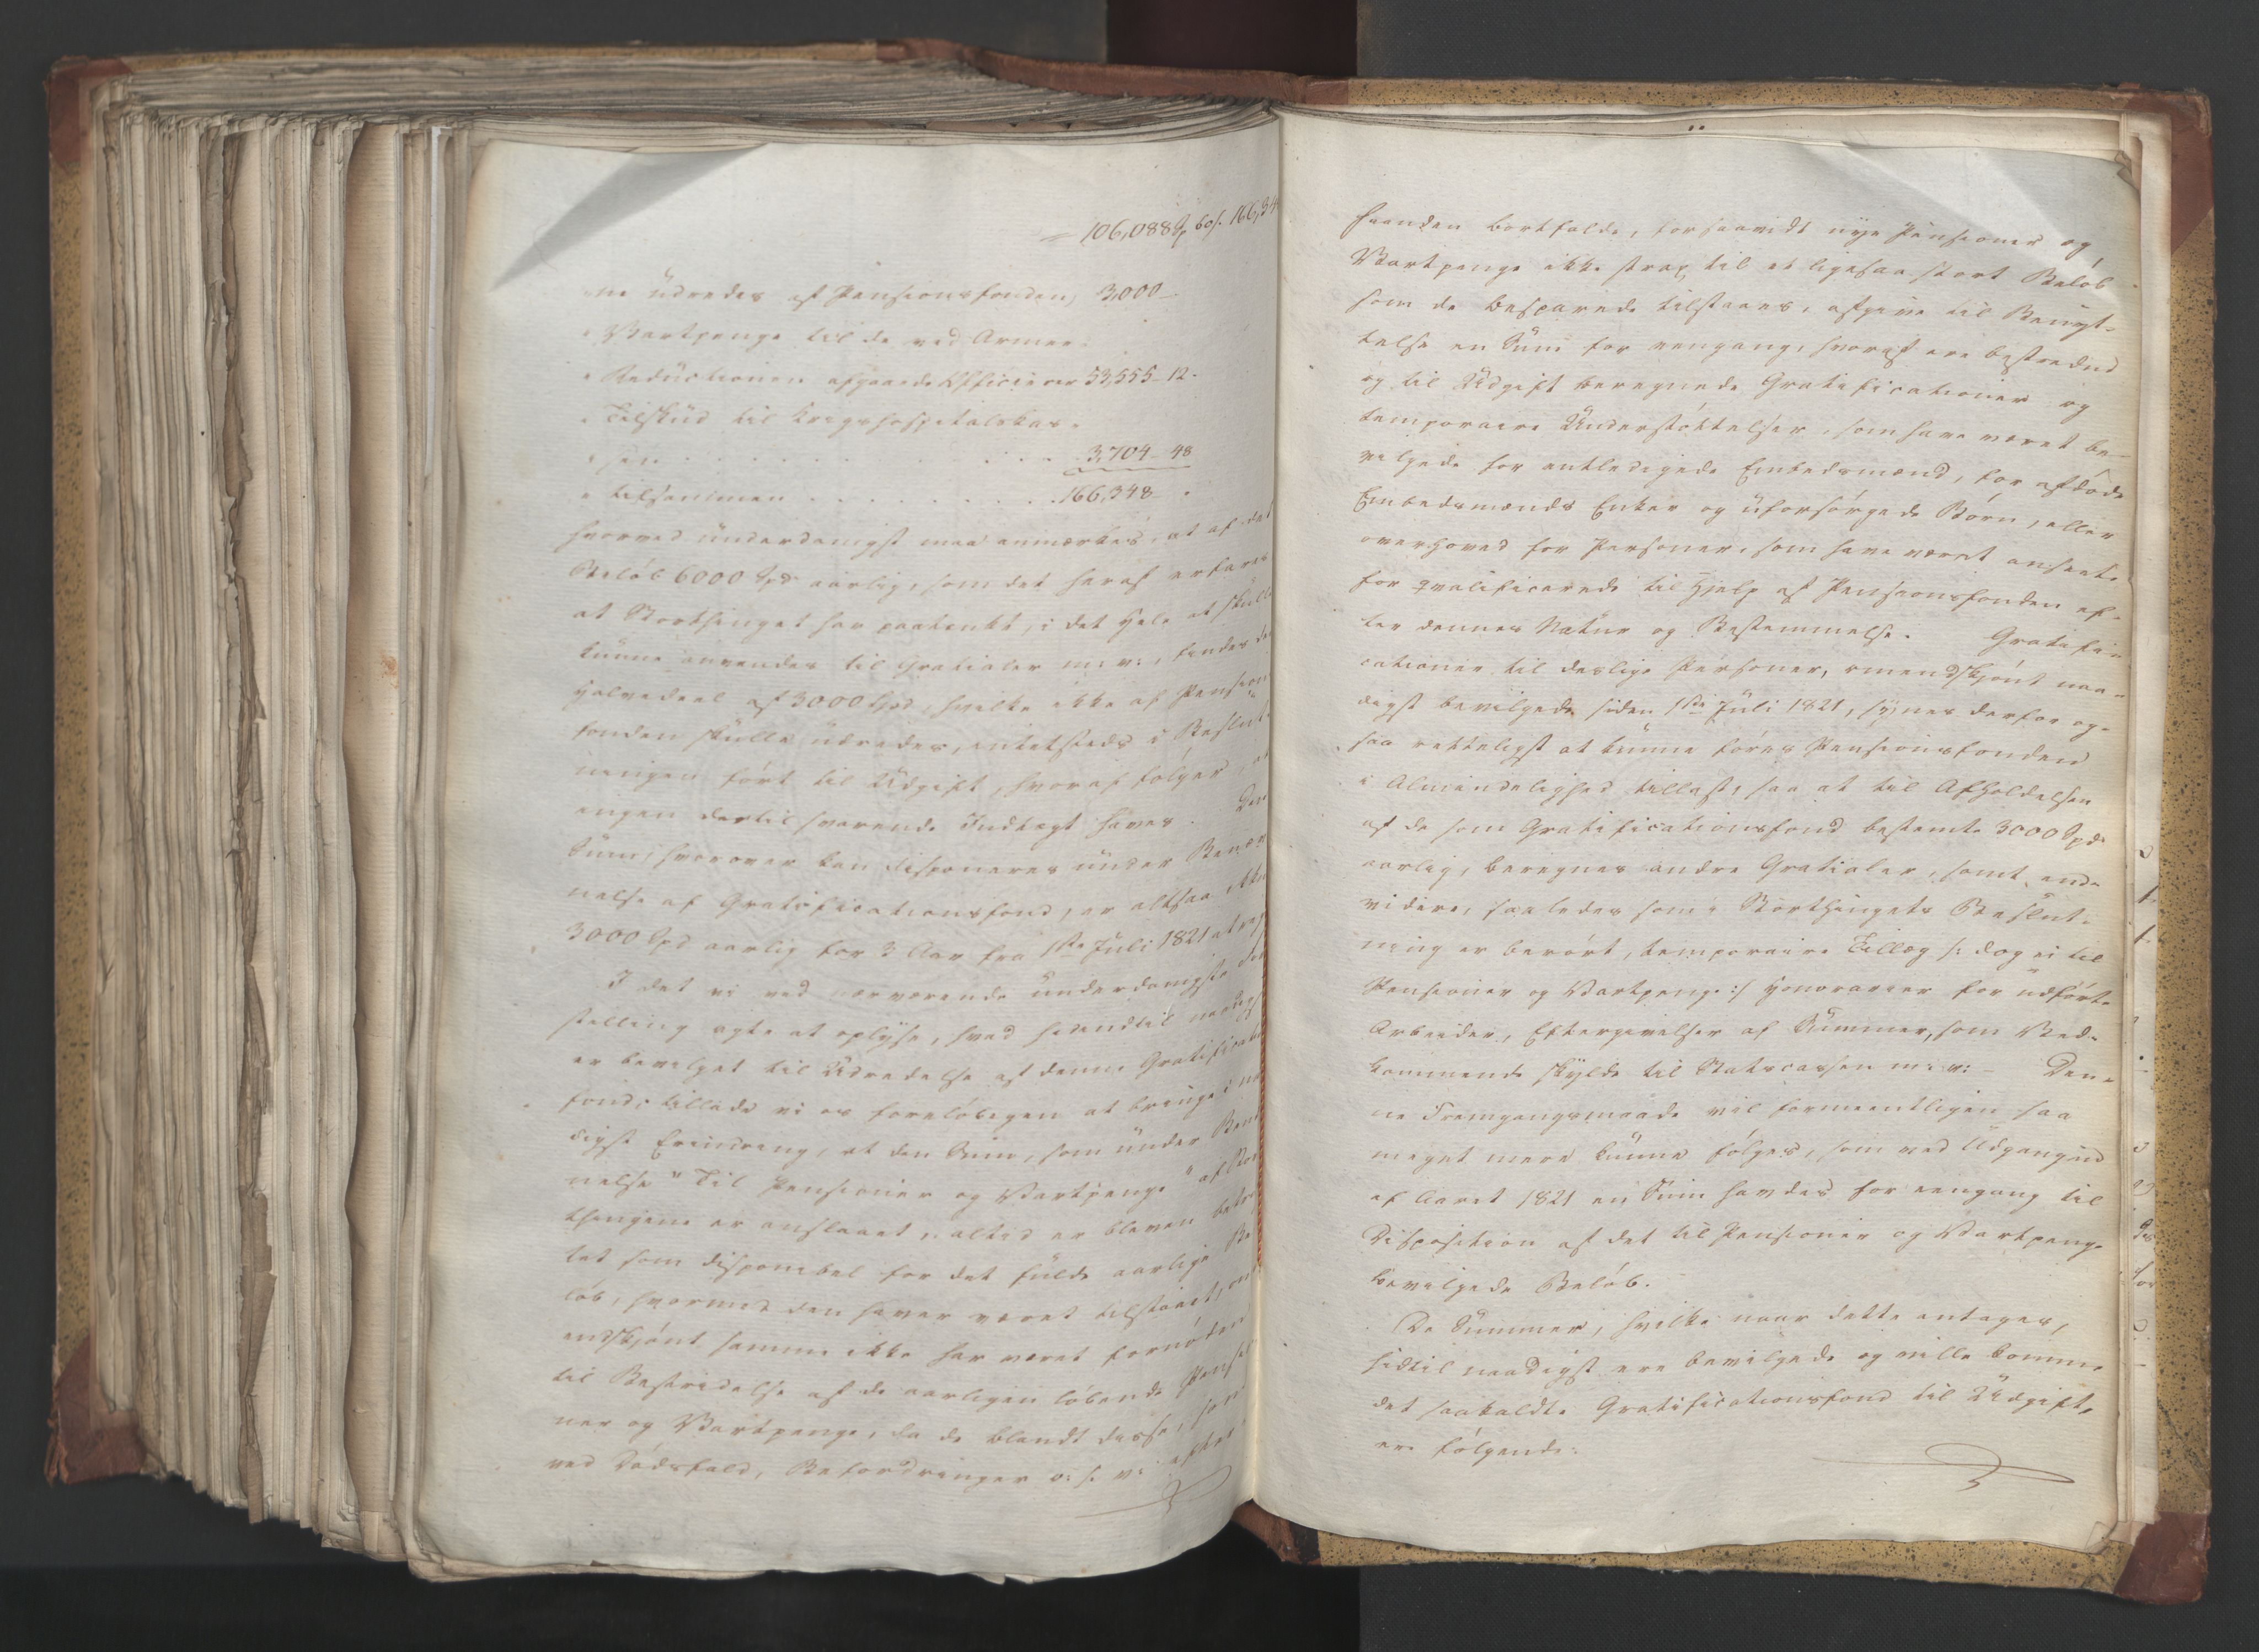 106,088 Sp 60 s. 166,34
ne udredes af Pensionsfonden, 3,000 –
Vartpenge til de ved Armee-
Reductionen afgaaede Officierer 53,555 - 12.
Tilskud til Krigshospitalskas-
sen . . . . . . . . . 3,704 - 48
tilsammen . . . . . . . . . 166,348 –
hvorved underdanigst maa anmærkes, at af det
Beløb 6000 Spd aarlig, som det heraf erfares
at Storthinget har paatænkt, i det Hele at skulle
kunne anvendes til Gratialer m: v:, findes den
Halvedeel af 3000 Spd, hvilke ikke af Pensions
fonden skulle udredes, intetsteds i Beslut-
ningen ført til Udgift, hvoraf følger, at
ingen dertil svarende Indtægt haves. Den
Sum, hvorover kan disponeres under Benæv-
nelse af Gratificationsfond, er altsaa ikkun
3000 Spd aarlig for 3 Aar fra 1ste Juli 1821 at reg
I det vi ved nærværende underdanigste For
stilling agte at oplyse, hvad hidindtil naadigst
er bevilget til Udredelse af denne Gratifications
fond, tillade vi os foreløbigen at bringe i naa
digst Erindring, at den Sum, som under Benæv
nelse "Til Pensioner og Vartpenge" af Stor
thingene er anslaaet, altid er bleven betrag
tet som disponibel for det fulde aarlige Be
løb, hvormed den haver været tilstaaet, om
endskjønt samme ikke har været fornøden
til Bestridelse af de aarligen løbende Pensio
ner og Vartpenge, da de blandt disse, som
ved Dødsfald, Befordringer o: s: v: efter
haanden bortfalde, forsaavidt nye Pensioner og
Vartpenge ikke strax til et ligesaa stort Beløb
som de besparede tilstaaes, afgive til Benyt-
telse en Sum for eengang, hvoraf ere bestredne
og til Udgift beregnede Gratificationer og
temporaire Understøttelser, som have været be-
vilgede for entledigede Embedsmænd, for afdøde
Embedsmænds Enker og uforsørgede Børn, eller
overhoved for Personer, som have været anseete
for qvalificerede til Hjelp af Pensionsfonden ef-
ter dennes Natur og Bestemmelse. Gratifi-
cationer til deslige Personer, omendskjønt naa-
digst bevilgede siden 1ste Juli 1821, synes derfor og-
saa retteligst at kunne føres Pensionsfonden
i Almindelighed tillast, saa at til Afholdelsen
af de som Gratificationsfond bestemte 3000 Spd.
aarlig, beregnes andre Gratialer, samt ende
videre, saaledes som i Storthingets Beslut-
ning er berørt, temporaire Tillæg /: dog ei til
Pensioner og Vartpenge :/ Honorarier for udførte
Arbeider, Eftergivelser af Summer, som Ved-
kommende skylde til Statscassen m: v: – Den-
ne Fremgangsmaade vil formeentligen saa
meget mere kunne følges, som ved Udgangen
af Aaret 1821 en Sum havdes for eengang til
Disposition af det til Pensioner og Vartpenge
bevilgede Beløb.
De Summer, hvilke naar dette antages,
hidtil naadigst ere bevilgede og ville komme
det saakaldte Gratificationsfond til Udgift,
ere følgende: